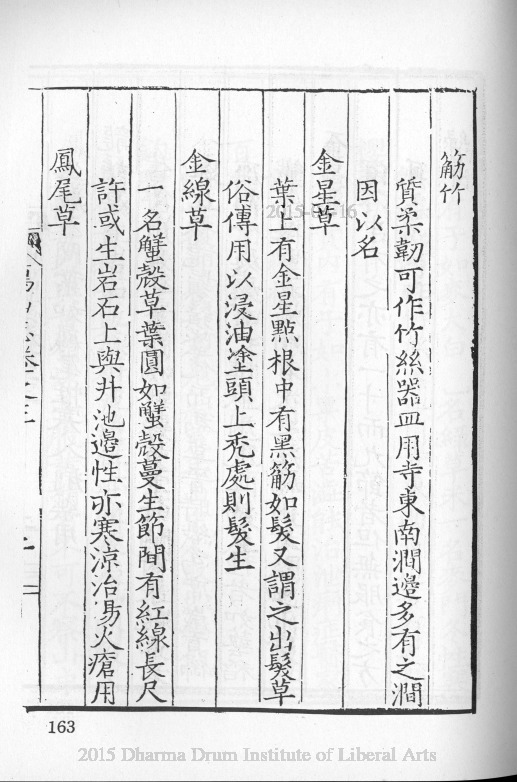 筋竹
質柔韌可作竹絲器皿用寺東南澗邊多有之澗
因以名
金星草
葉上有金星點根中有黑筋如髮又謂之出髮草
俗傳用以浸油塗頭上禿處則髮生
金線草
一名蟹殼草葉圓如蟹殼蔓生節間有紅線長尺
許或生岩石上與井池邊性亦寒涼治湯火瘡用
鳳尾草
163
2015 Dharma Drum Institute of Liberal Arts